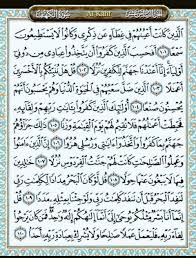 سُورَةُ الكَهْفِ Al-Kahf الجُزْءُ السَّادِسَ عَشَرَ
الَّذِينَ كَانَتْ أَعْيُنُهُمْ فِي غِطَاءٍ عَن ذِكْرِي وَكَانُوا لَا يَسْتَطِيعُونَ
سَمْعًا ١٠١ أَفَحَسِبَ الَّذِينَ كَفَرُوا أَن يَتَّخِذُوا عِبَادِي مِن دُونِي
أَوْلِيَاءَ إِنَّا أَعْتَدْنَا جَهَنَّمَ لِلْكَافِرِينَ نُزُلًا ١٠٢ قُلْ هَلْ نُنَبِّئُكُم بِالْأَخْسَرِينَ
أَعْمَالًا ١٠٣ الَّذِينَ ضَلَّ سَعْيُهُمْ فِي الْحَيَاةِ الدُّنْيَا وَهُمْ يَحْسَبُونَ أَنَّهُمْ
يُحْسِنُونَ صُنْعًا ١٠٤ أُولَٰئِكَ الَّذِينَ كَفَرُوا بِآيَاتِ رَبِّهِمْ وَلِقَائِهِ
فَحَبِطَتْ أَعْمَالُهُمْ فَلَا نُقِيمُ لَهُمْ يَوْمَ الْقِيَامَةِ وَزْنًا ١٠٥ ذَٰلِكَ جَزَاؤُهُمْ
جَهَنَّمُ بِمَا كَفَرُوا وَاتَّخَذُوا آيَاتِي وَرُسُلِي هُزُوًا ١٠٦ إِنَّ الَّذِينَ آمَنُوا
وَعَمِلُوا الصَّالِحَاتِ كَانَتْ لَهُمْ جَنَّاتُ الْفِرْدَوْسِ نُزُلًا ١٠٧ خَالِدِينَ
فِيهَا لَا يَبْغُونَ عَنْهَا حِوَلًا ١٠٨ قُل لَّوْ كَانَ الْبَحْرُ مِدَادًا لِّكَلِمَاتِ رَبِّي
لَنَفِدَ الْبَحْرُ قَبْلَ أَن تَنفَدَ كَلِمَاتُ رَبِّي وَلَوْ جِئْنَا بِمِثْلِهِ مَدَدًا ١٠٩ قُلْ
إِنَّمَا أَنَا بَشَرٌ مِّثْلُكُمْ يُوحَىٰ إِلَيَّ أَنَّمَا إِلَٰهُكُمْ إِلَٰهٌ وَاحِدٌ فَمَن كَانَ يَرْجُو
لِقَاءَ رَبِّهِ فَلْيَعْمَلْ عَمَلًا صَالِحًا وَلَا يُشْرِكْ بِعِبَادَةِ رَبِّهِ أَحَدًا ١١٠